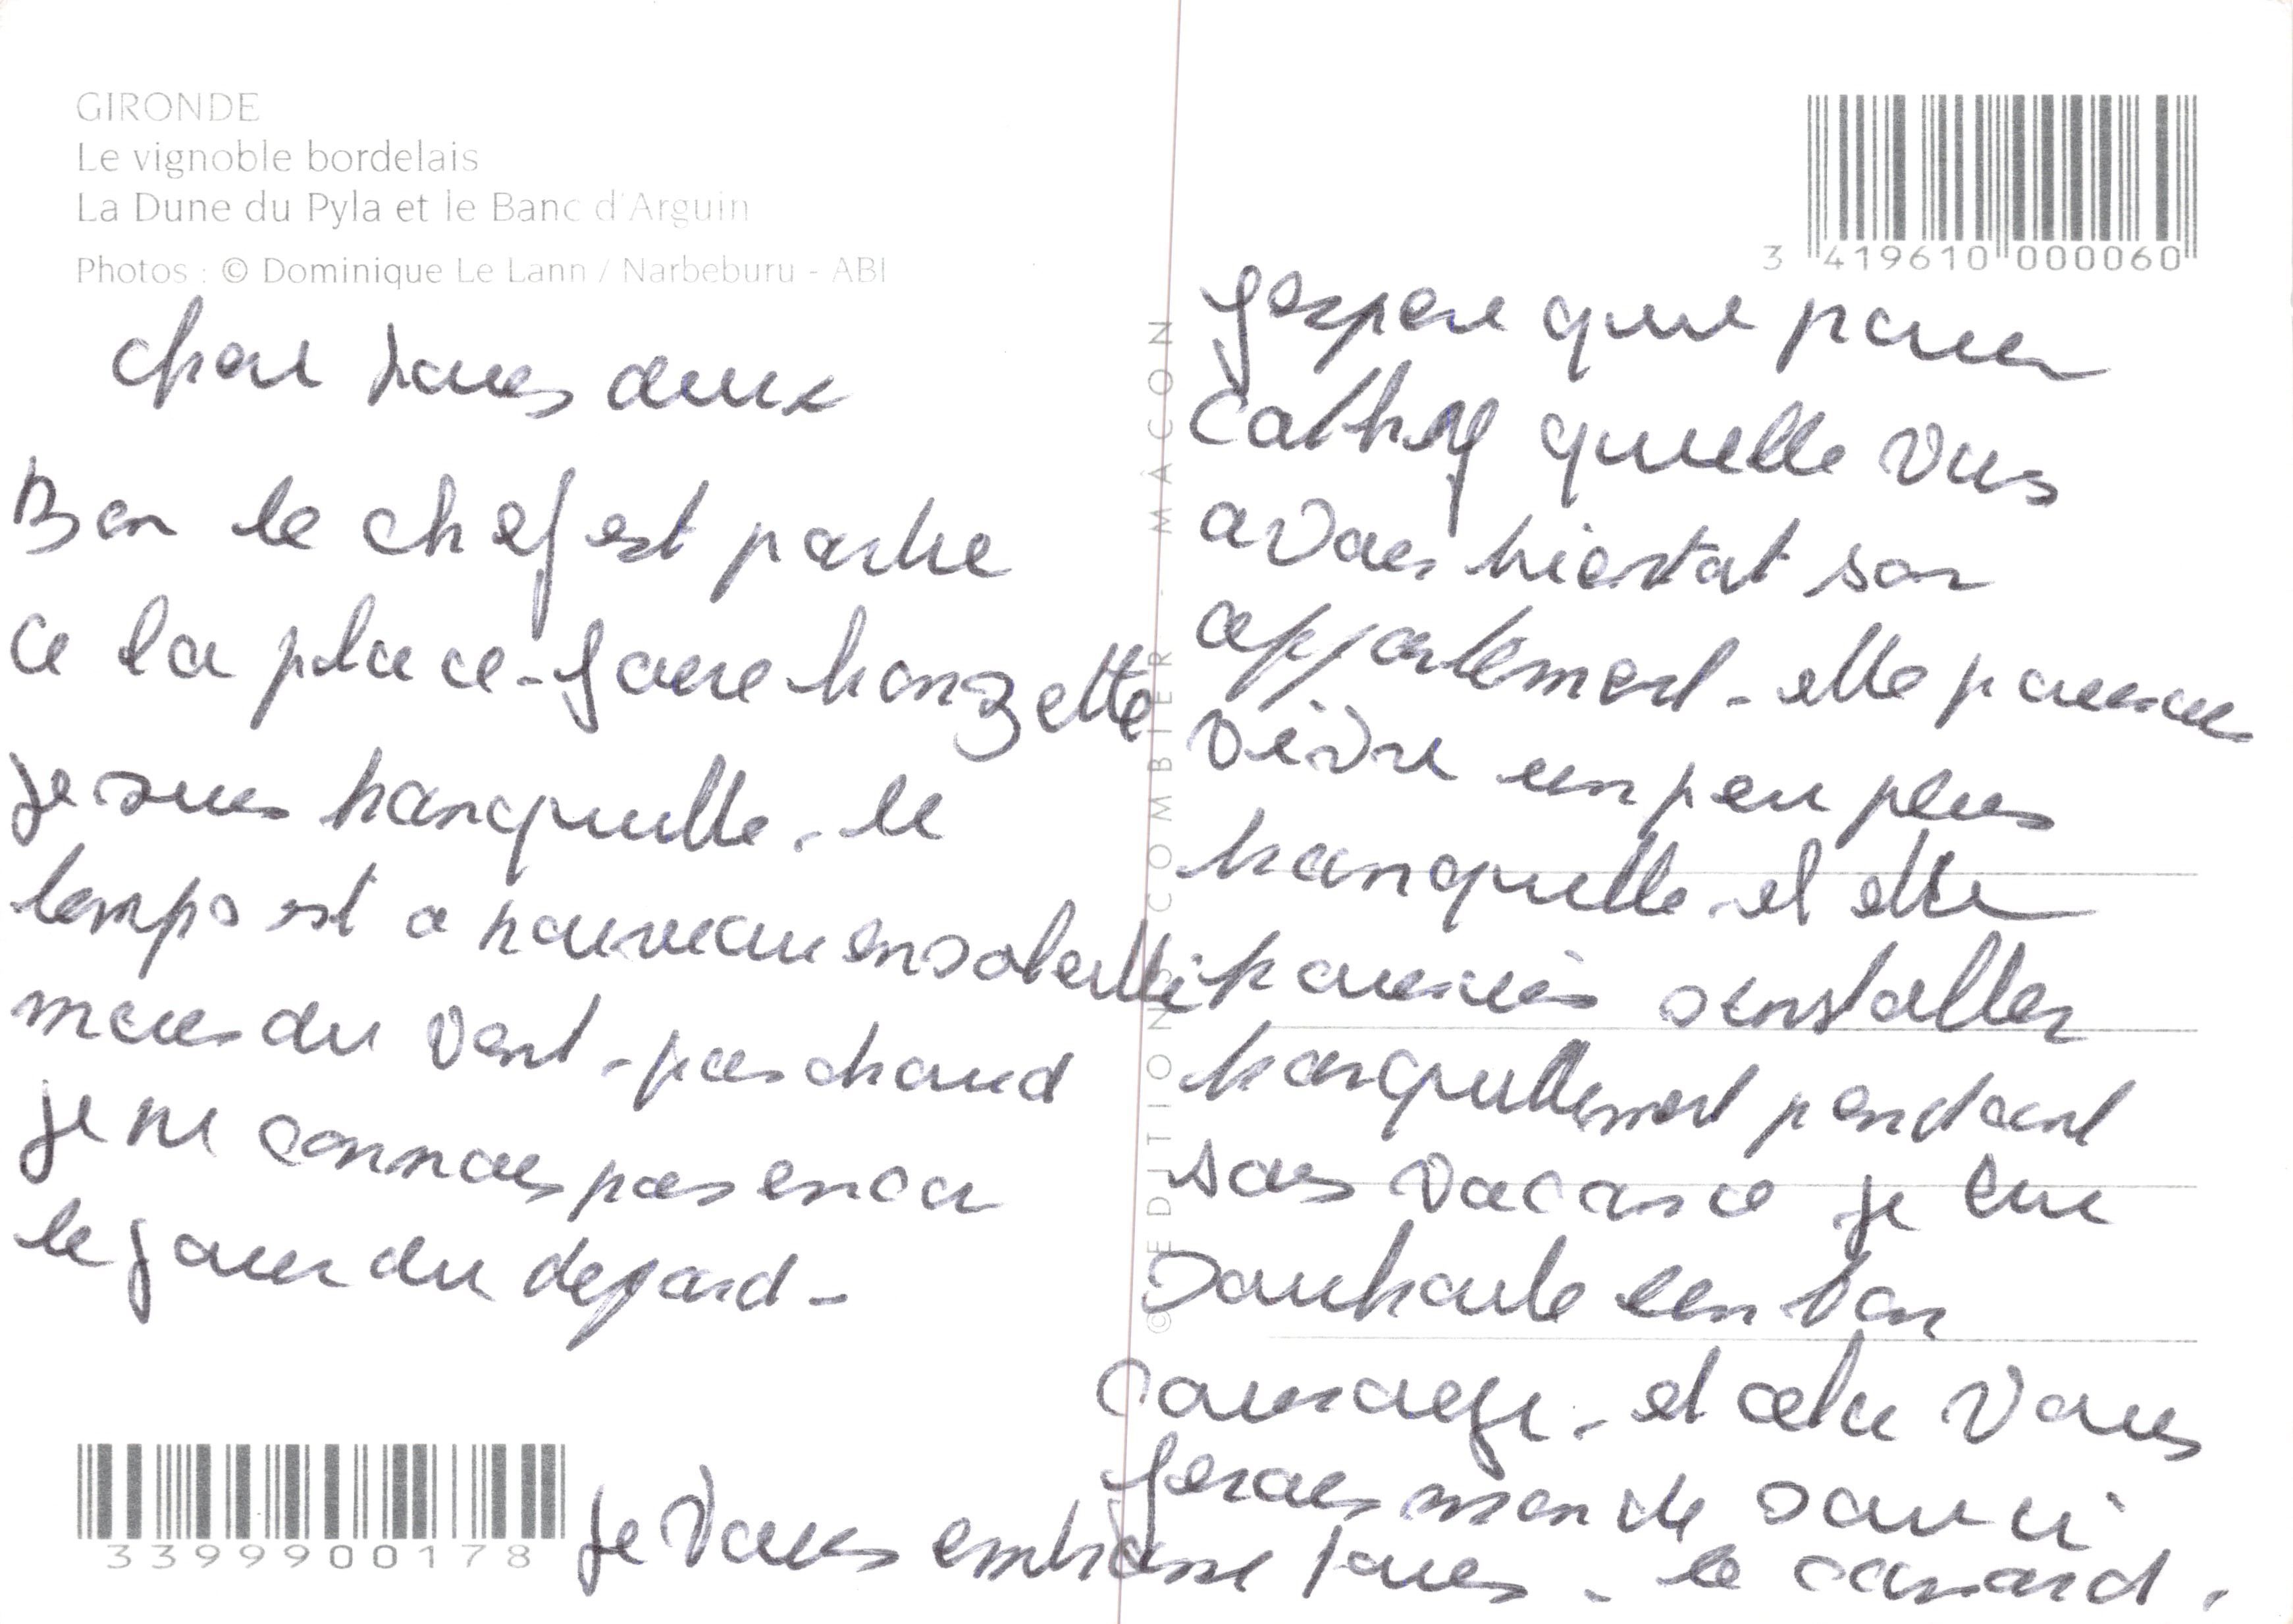 GIRONDE
Le vignoble bordelais
La Dune du Pyla et le Banc d'Arguin
Photos : © Dominique Le Lann / Narbeburu - ABI
cher tous deux
Bon le chef est partie
a la place - faire bronzette
je suis tranquille - le
temps est a nouveau ensoleillé
mais du vent - pas chaud
je ne connais pas encor
le jour du depard -
3399900178
© EDITIONS COMBIER - MÂCON
3 419610 000060
j'espere que pour
Cathy quelle
avais son
appartement - elle pourai
vivre un peu plus
tranquille - et elle
pourais s'installer
tranquillement pendant
sais vacance je lui
souhaite un bon
courage - et cela vous
ferais moin de souci
je vous embrasse tous - le canard.